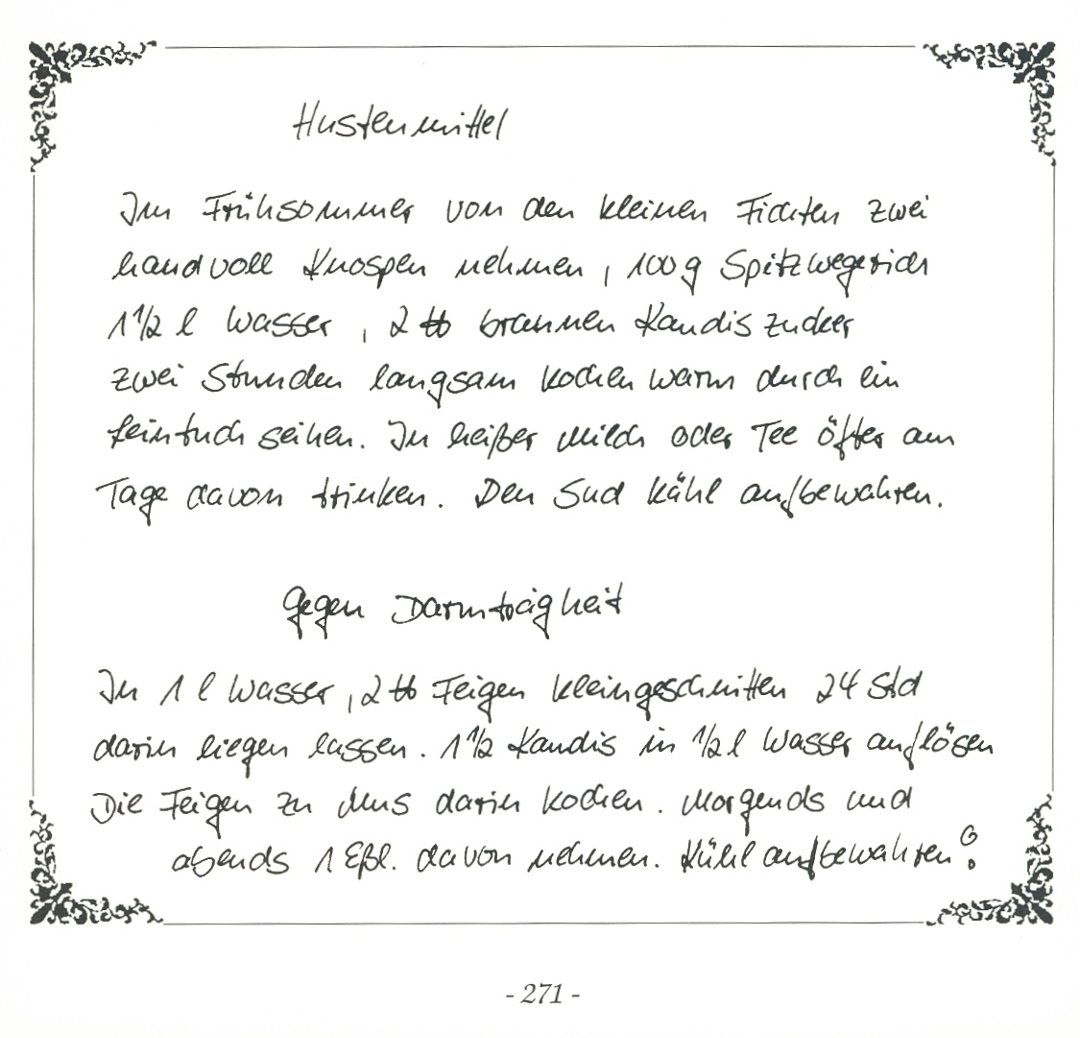 Hustenmittel
Im Frühsommer von den kleinen Fichten zwei
handvoll Knospen nehmen, 100 g Spitzwegerich
1 1/2 l Wasser, 2 ℔ braunen Kandiszucker
zwei Stunden langsam kochen warm durch ein
Feintuch seihen. In heißer Milch oder Tee öfter am
Tage davon trinken. Den Sud kühl aufbewahren.
Gegen Darmträgheit
In 1 l Wasser, 2 ℔ Feigen kleingeschnitten 24 Std
darin liegen lassen. 1 1/2 Kandis in 1/2 l Wasser auflösen
Die Feigen zu Mus darin kochen. Morgends und
abends 1 Eßl. davon nehmen. Kühl aufbewahren!
- 271 -